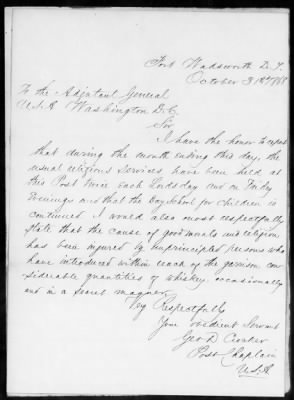 Fort Wadsworth D.T.
October 31st 1868
To the Adjutant General
U.S.A Washington D.C.
Sir
I have the honor to report
that during the month ending this day, the
usual religious services, have been held at
this Post twice each Lords day and on Friday
Evenings and that the Day School for children is
continued. I would also most respectfully
state that the cause of good morals and religion
has been injured by unprincipled persons who
have introduced within reach of the garrison con-
siderable quantities of whiskey occasionally
and in a secret manner.
Very Respectfully
Your obedient Servant
Geo D
Post Chaplain
U.S.A.